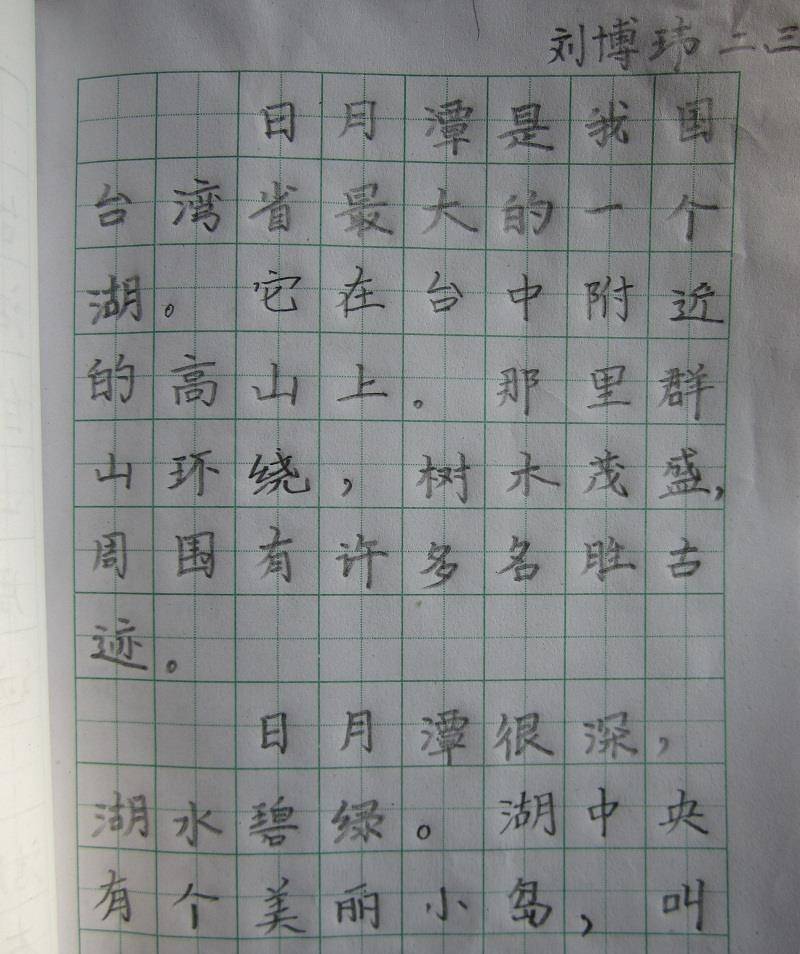 刘博玮二三
日月潭是我国
台湾省最大的一个
湖。它在台中附近
的高山上。那里群
山环绕，树木茂盛，
周围有许多名胜古
迹。
日月潭很深，
湖水碧绿。湖中央
有个美丽小岛，叫